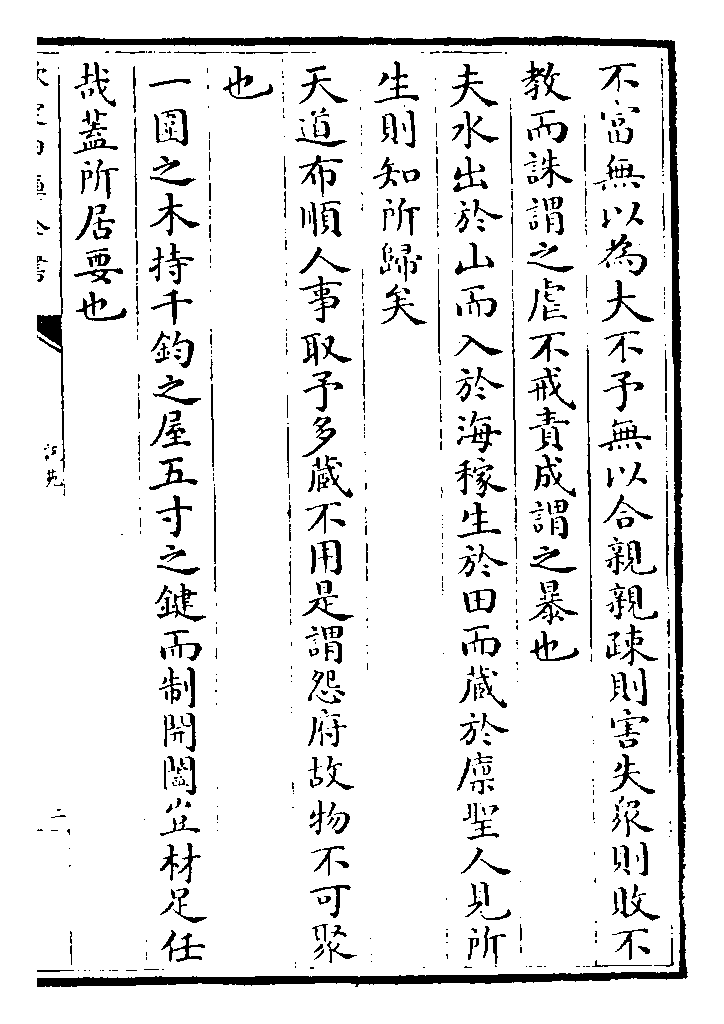 不富無以為大不予無以合親親疎則害失衆則敗不
教而誅謂之虐不戒責成謂之暴也
夫水出於山而入於海稼生於田而藏於廪聖人見所
生則知所歸矣
天道布順人事取予多藏不用是謂怨府故物不可聚
也
一圍之木持千鈞之屋五寸之鍵而制開闔豈材足任
哉蓋所居要也
説苑
二